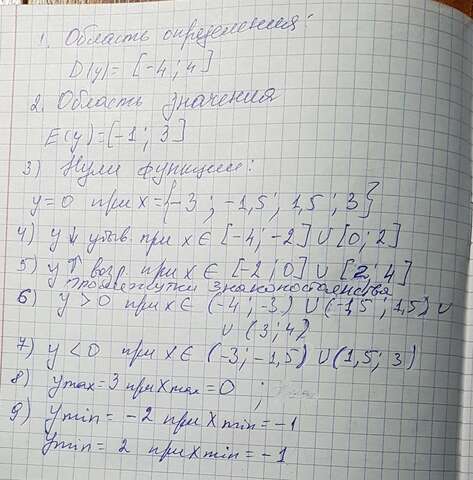 1. Область определения:
D(y)= [-4; 4]
2. Область значения
E(y)=[-1; 3]
3) Нули функции:
y=0 при x={-3; -1,5; 1,5; 3}
4) y↓ убыв. при x∈ [-4; -2] ∪ [0; 2]
5) y↑ возр. при x∈ [-2; 0] ∪ [2; 4]
Промежутки знакопостоянства
6) y>0 при x∈ (-4; -3) ∪ (-1,5; 1,5) ∪
∪ (3; 4)
7) y<0 при x∈ (-3; -1,5) ∪ (1,5; 3)
8) ymax=3 при xmax=0 ;
9) ymin= -2 при xmin= -1
ymin= 2 при xmin= -1